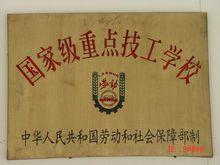 国家级重点技工学校
劳动
中华人民共和国劳动和社会保障部制